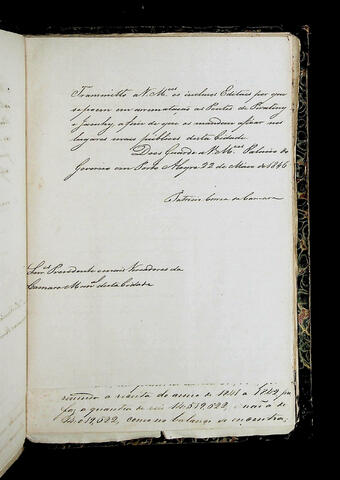 Transmitto a V. M.ces os inclusos Editaes por que
se poem em arrematação as Pontes de Piratiny
e            , a fim de que os mandem afixar nos
lugares mais publicos desta Cidade.
Deos Guarde a V. M.ces Palacio do
Governo em Porto Alegre 22 de Maio de 1846
Patricio Correa da Camara
Snr.es Presidente e mais Vereadores da
Camara Mun.al desta Cidade
a renda do anno de 1841 a 1842
a quantia de 14.519,522, e não a de
14.019,522, como no balanço se encontra.